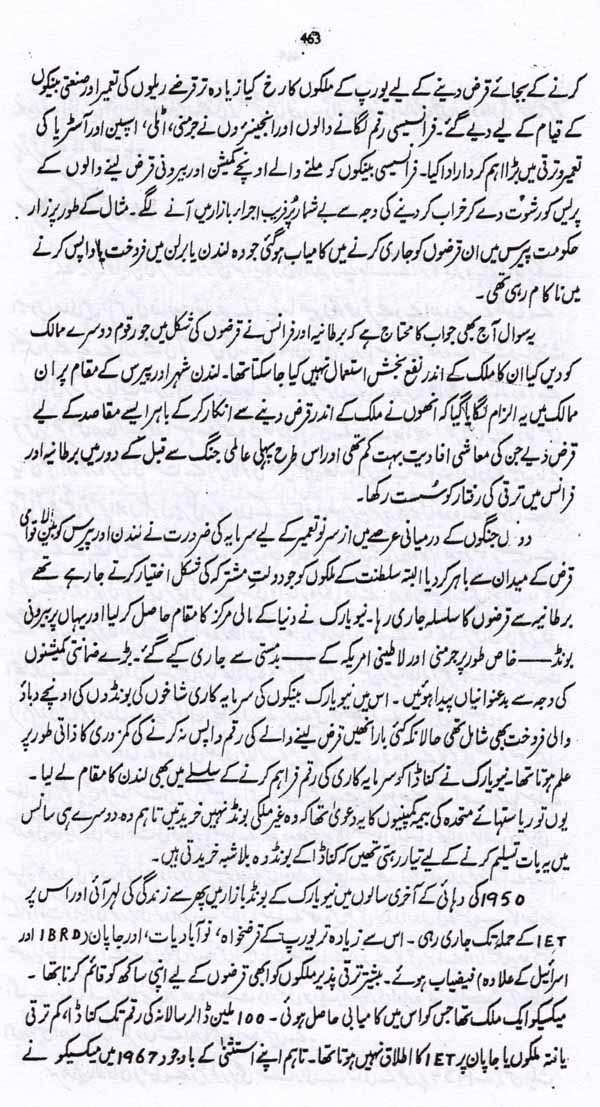 463
کرنے کے بجائے قرض دینے کے لیے یورپ کے ملکوں کا رخ کیا زیادہ تر قرضے ریلوں کی تعمیر اور صنعتی بینکوں
کے قیام کے لیے دیے گئے۔ فرانسیسی رقم لگانے والوں اور انجینئروں نے جرمنی، اٹلی، اسپین اور آسٹریا کی
تعمیر و ترقی میں بڑا اہم کردار ادا کیا۔ فرانسیسی بینکوں کو ملنے والے اونچے کمیشن اور بیرونی قرض لینے والوں کے
پریس کو رشوت دے کر خراب کر دینے کی وجہ سے بے شمار پُر فریب اجرار بازار میں آنے لگے۔ مثال کے طور پر زار
حکومت پیرس میں ان قرضوں کو جاری کرنے میں کامیاب ہو گئی جو وہ لندن یا برلن میں فروخت یا واپس کرنے
میں ناکام رہی تھی۔
یہ سوال آج بھی جواب کا محتاج ہے کہ برطانیہ اور فرانس نے قرضوں کی شکل میں جو رقوم دوسرے ممالک
کو دیں کیا ان کا ملک کے اندر نفع بخش استعمال نہیں کیا جا سکتا تھا۔ لندن شہر اور پیرس کے مقام پر ان
ممالک میں یہ الزام لگایا گیا کہ انھوں نے ملک کے اندر قرض دینے سے انکار کر کے باہر ایسے مقاصد کے لیے
قرض دیے جن کی معاشی افادیت بہت کم تھی اور اس طرح پہلی عالمی جنگ سے قبل کے دور میں برطانیہ اور
فرانس میں ترقی کی رفتار کو سُست رکھا۔
دو ں جنگوں کے درمیانی عرصے میں از سر نو تعمیر کے لیے سرمایہ کی ضرورت نے لندن اور پیرس کو بین الاقوامی
قرض کے میدان سے باہر کر دیا البتہ سلطنت کے ملکوں کو جو دولتِ مشترکہ کی شکل اختیار کرتے جا رہے تھے
برطانیہ سے قرضوں کا سلسلہ جاری رہا۔ نیویارک نے دنیا کے مالی مرکز کا مقام حاصل کر لیا اور یہاں پر بیرونی
بونڈ —— خاص طور پر جرمنی اور لاطینی امریکہ کے —— بدمستی سے جاری کیے گئے۔ بڑے ضمانتی کمیشنوں
کی وجہ سے بدعنوانیاں پیدا ہوئیں۔ اس میں نیویارک بینکوں کی سرمایہ کاری شاخوں کی بونڈوں کی اونچے دباؤ
والی فروخت بھی شامل تھی حالانکہ کئی بار انھیں قرض لینے والے کی رقم واپس نہ کرنے کی کمزوری کا ذاتی طور پر
علم ہوتا تھا۔ نیویارک نے کناڈا کو سرمایہ کاری کی رقم فراہم کرنے کے سلسلے میں بھی لندن کا مقام لے لیا۔
یوں تو ریاستہائے متحدہ کی بیمہ کمپنیوں کا یہ دعویٰ تھا کہ وہ غیر ملکی بونڈ نہیں خریدتیں تاہم وہ دوسرے ہی سانس
میں یہ بات تسلیم کرنے کے لیے تیار رہتی تھیں کہ کناڈا کے بونڈ وہ بلاشبہ خریدتی ہیں۔
1950 کی دہائی کے آخری سالوں میں نیویارک کے بونڈ بازار میں پھر سے زندگی کی لہر آئی اور اس پر
IET کے حملہ تک جاری رہی۔ اس سے زیادہ تر یورپ کے قرضخواہ، نوآبادیات، اور جاپان (IBRD اور
اسرائیل کے علاوہ) فیضیاب ہوئے۔ بیشتر ترقی پذیر ملکوں کو ابھی قرضوں کے لیے اپنی ساکھ کو قائم کرنا تھا۔
میکسیکو ایک ملک تھا جس کو اس میں کامیابی حاصل ہوئی۔ 100 ملین ڈالر سالانہ کی رقم تک کناڈا، کم ترقی
یافتہ ملکوں یا جاپان پر IET کا اطلاق نہیں ہوتا تھا۔ تاہم اپنے استثنیٰ کے باوجود 1967 میں میکسیکو نے